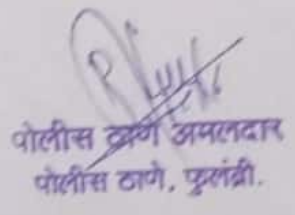 पोलीस ठाणे अमलदार
पोलीस ठाणे, फुलंब्री.